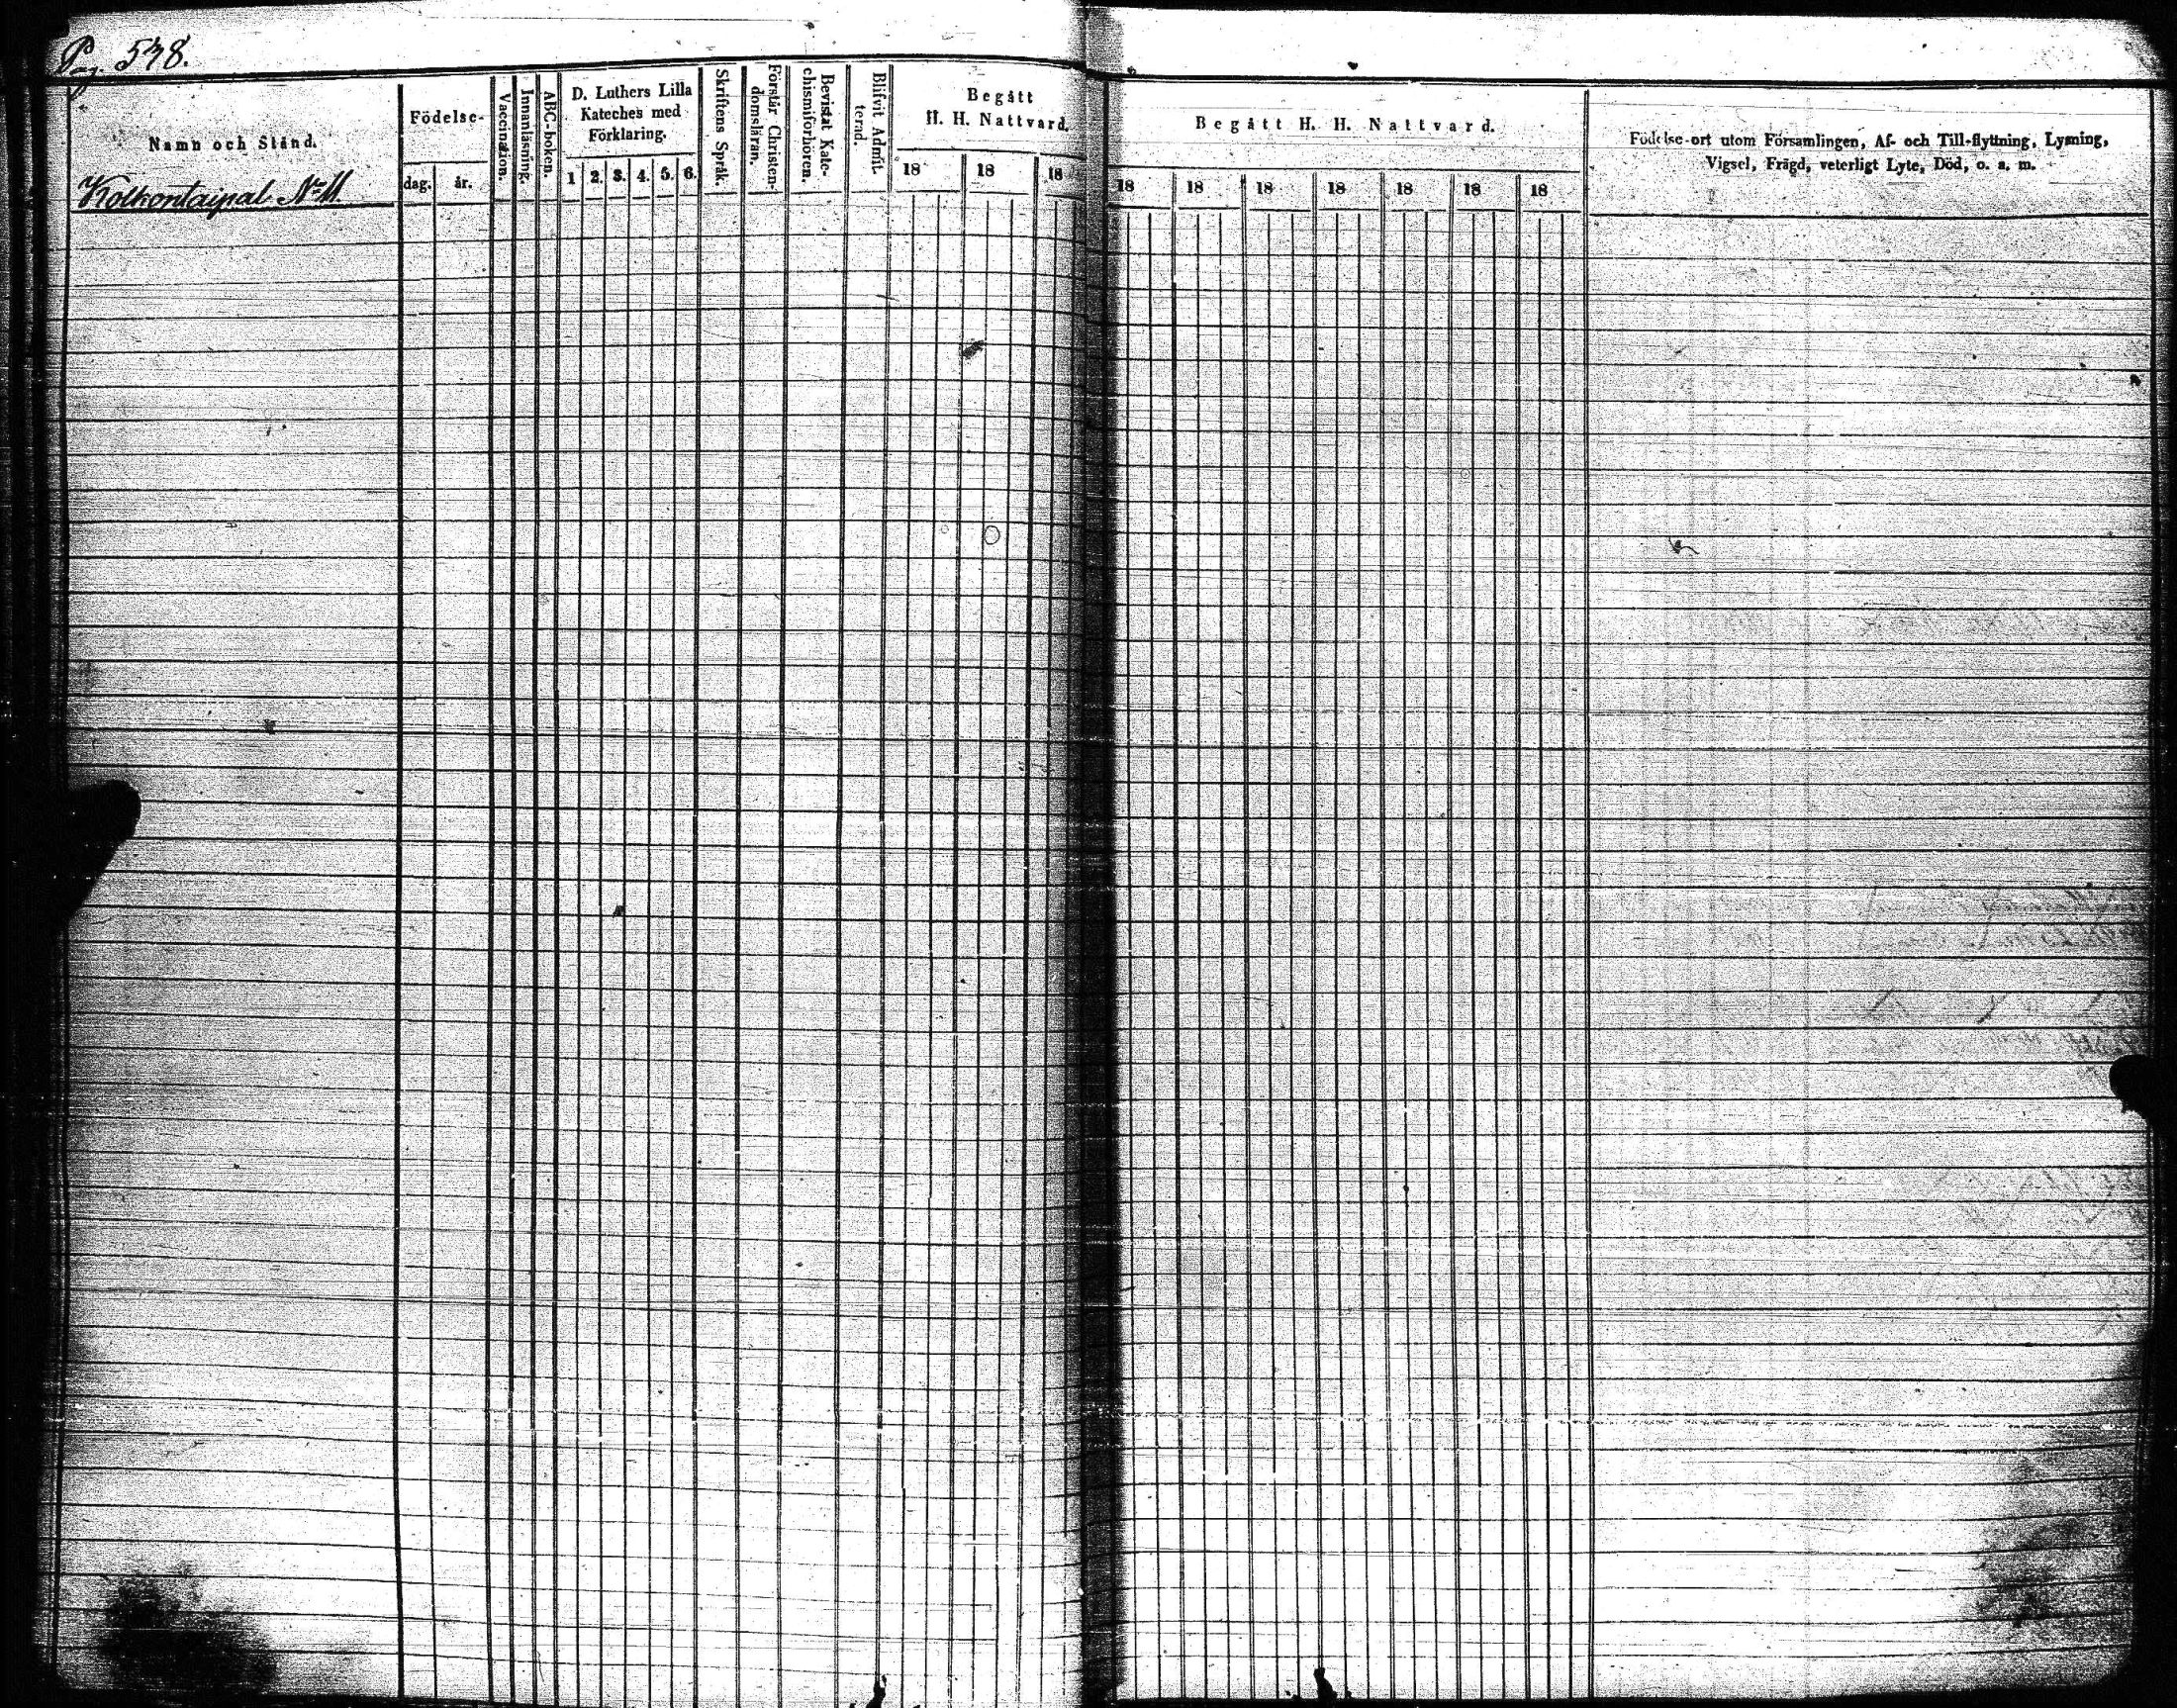 Pag. 578.
Namn och Stånd.
Kolkontaipal No 11.
Födelse-
dag.
år.
Vaccination.
Innanläsning.
ABC-boken.
D. Luthers Lilla
Kateches med
Förklaring.
1 2. 3. 4. 5. 6.
Skriftens Språk.
Förstår Christen-
domsläran.
Bevistat Kate-
chismiförhören.
Blifvit Admit-
terad.
Begått
H. H. Nattvard.
18 18 18
Begått H. H. Nattvard.
18 18 18 18 18 18 18
Födelse-ort utom Församlingen, Af- och Till-flyttning, Lysning,
Vigsel, Frägd, veterligt Lyte, Död, o. a. m.